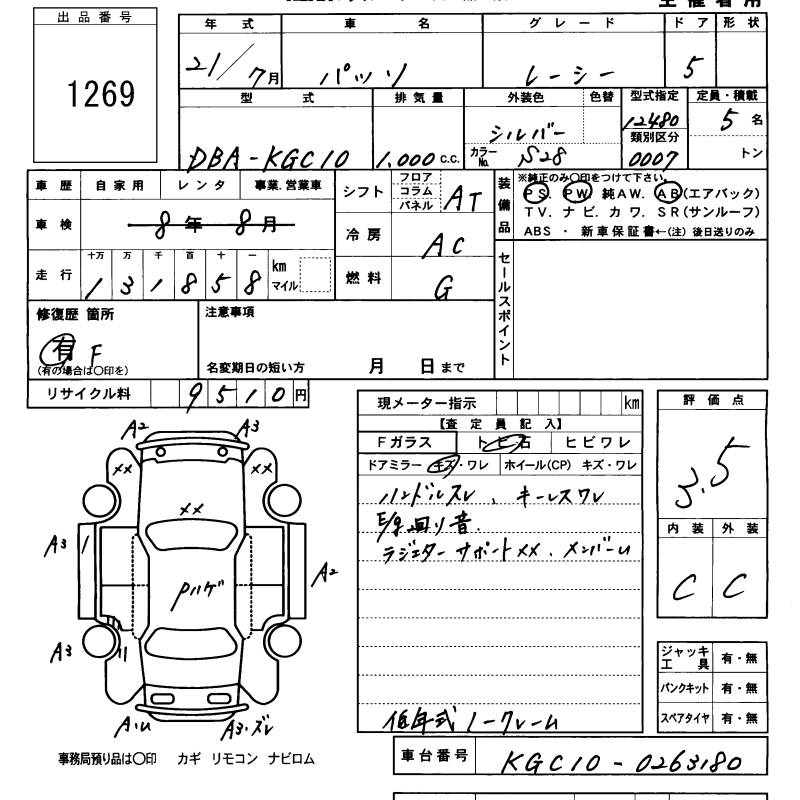 出品番号
1269
年式 車名 グレード ドア 形状
21/7月 パッソ レーシー 5
型式 排気量 外装色 色替 型式指定 定員・積載
DBA-KGC10 1,000 c.c. シルバー 12480 5名
カラーNo. S28 類別区分 0007 トン
車歴 自家用 レンタ 事業.営業車
車検 8年8月
走行 十万 万 千 百 十 一
131858 km マイル
シフト フロア コラム パネル AT
冷房 AC
燃料 G
装備品 ※純正のみ○印をつけて下さい。
PS. PW. 純AW. AB(エアバック)
TV. ナビ. カワ. SR(サンルーフ)
ABS ・ 新車保証書←(注) 後日送りのみ
セールスポイント
修復歴 箇所
有 F
(有の場合は○印を)
注意事項
名変期日の短い方 月 日まで
リサイクル料 9510円
現メーター指示 km
【査定員記入】
Fガラス トビ石 ヒビワレ
ドアミラー キズ・ワレ ホイール(CP) キズ・ワレ
ハンドルスレ、キーレスワレ
E/g回り音.
ラジエターサポートXX、メンバーU
低年式ノークレーム
評価点
3.5
内装 外装
C C
ジャッキ工具 有・無
パンクキット 有・無
スペアタイヤ 有・無
A2 A3
XX XX
XX
A3
Pハゲ
A2
A3
A・U A3・ズレ
事務局預り品は○印 カギ リモコン ナビロム
車台番号 KGC10-0263180